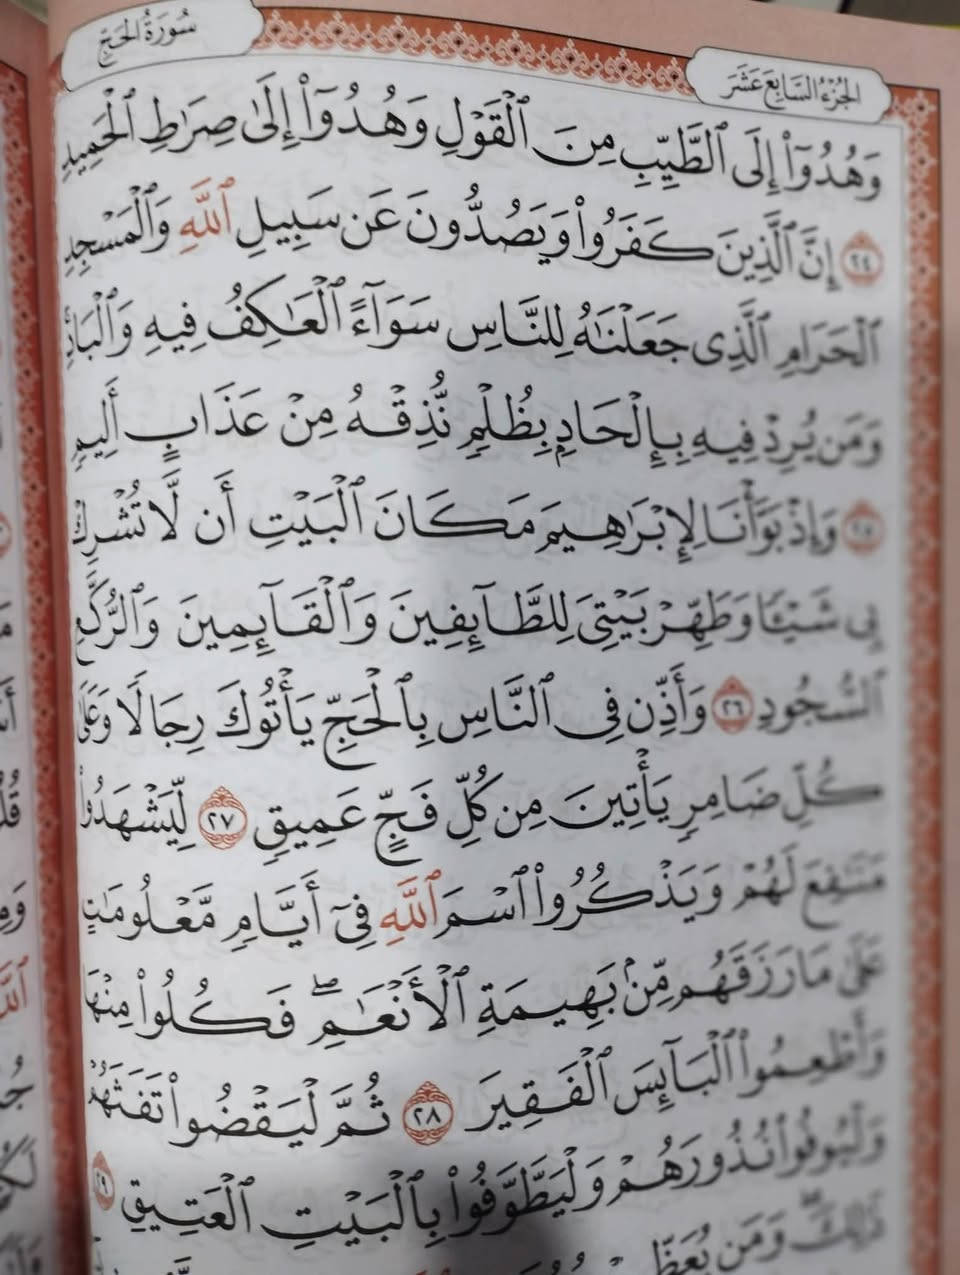 الجزء السابع عشر
سورة الحج
وَهُدُوٓاْ إِلَى ٱلطَّيِّبِ مِنَ ٱلۡقَوۡلِ وَهُدُوٓاْ إِلَىٰ صِرَٰطِ ٱلۡحَمِيدِ
٢٤ إِنَّ ٱلَّذِينَ كَفَرُواْ وَيَصُدُّونَ عَن سَبِيلِ ٱللَّهِ وَٱلۡمَسۡجِدِ
ٱلۡحَرَامِ ٱلَّذِي جَعَلۡنَٰهُ لِلنَّاسِ سَوَآءً ٱلۡعَٰكِفُ فِيهِ وَٱلۡبَادِ
وَمَن يُرِدۡ فِيهِ بِإِلۡحَادِۭ بِظُلۡمٖ نُّذِقۡهُ مِنۡ عَذَابٍ أَلِيمٖ
٢٥ وَإِذۡ بَوَّأۡنَا لِإِبۡرَٰهِيمَ مَكَانَ ٱلۡبَيۡتِ أَن لَّا تُشۡرِكۡ
بِي شَيۡـٔٗا وَطَهِّرۡ بَيۡتِيَ لِلطَّآئِفِينَ وَٱلۡقَآئِمِينَ وَٱلرُّكَّعِ
ٱلسُّجُودِ ٢٦ وَأَذِّن فِي ٱلنَّاسِ بِٱلۡحَجِّ يَأۡتُوكَ رِجَالٗا وَعَلَىٰ
كُلِّ ضَامِرٖ يَأۡتِينَ مِن كُلِّ فَجٍّ عَمِيقٖ ٢٧ لِّيَشۡهَدُواْ
مَنَٰفِعَ لَهُمۡ وَيَذۡكُرُواْ ٱسۡمَ ٱللَّهِ فِيٓ أَيَّامٖ مَّعۡلُومَٰتٍ
عَلَىٰ مَا رَزَقَهُم مِّنۢ بَهِيمَةِ ٱلۡأَنۡعَٰمِۖ فَكُلُواْ مِنۡهَا
وَأَطۡعِمُواْ ٱلۡبَآئِسَ ٱلۡفَقِيرَ ٢٨ ثُمَّ لۡيَقۡضُواْ تَفَثَهُمۡ
وَلۡيُوفُواْ نُذُورَهُمۡ وَلۡيَطَّوَّفُواْ بِٱلۡبَيۡتِ ٱلۡعَتِيقِ ٢٩
ذَٰلِكَۖ وَمَن يُعَظِّمۡ